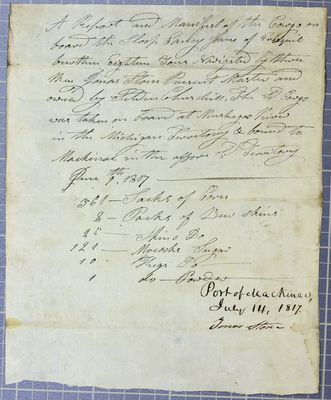 A Report and Manifest of the Cargo on
board the Sloop Salley Jane of
burthen Eighteen Tons Navigated by three
Men Jonas Stone Present Master and
owned by Selden Churchill. The Sd Cargo
was taken on board at River
in the Michigan Territory & bound to
Mackinac in the affore Sd Territory
June 9th, 1817
361 — Sacks of Corn
8 — Packs of Deer Skins
25 — Skins Do
121 — Mococks Sugar
10 — Kegs Do
1 — do — Powder
Port of Mackinac,
July 14, 1817
Jonas Stone